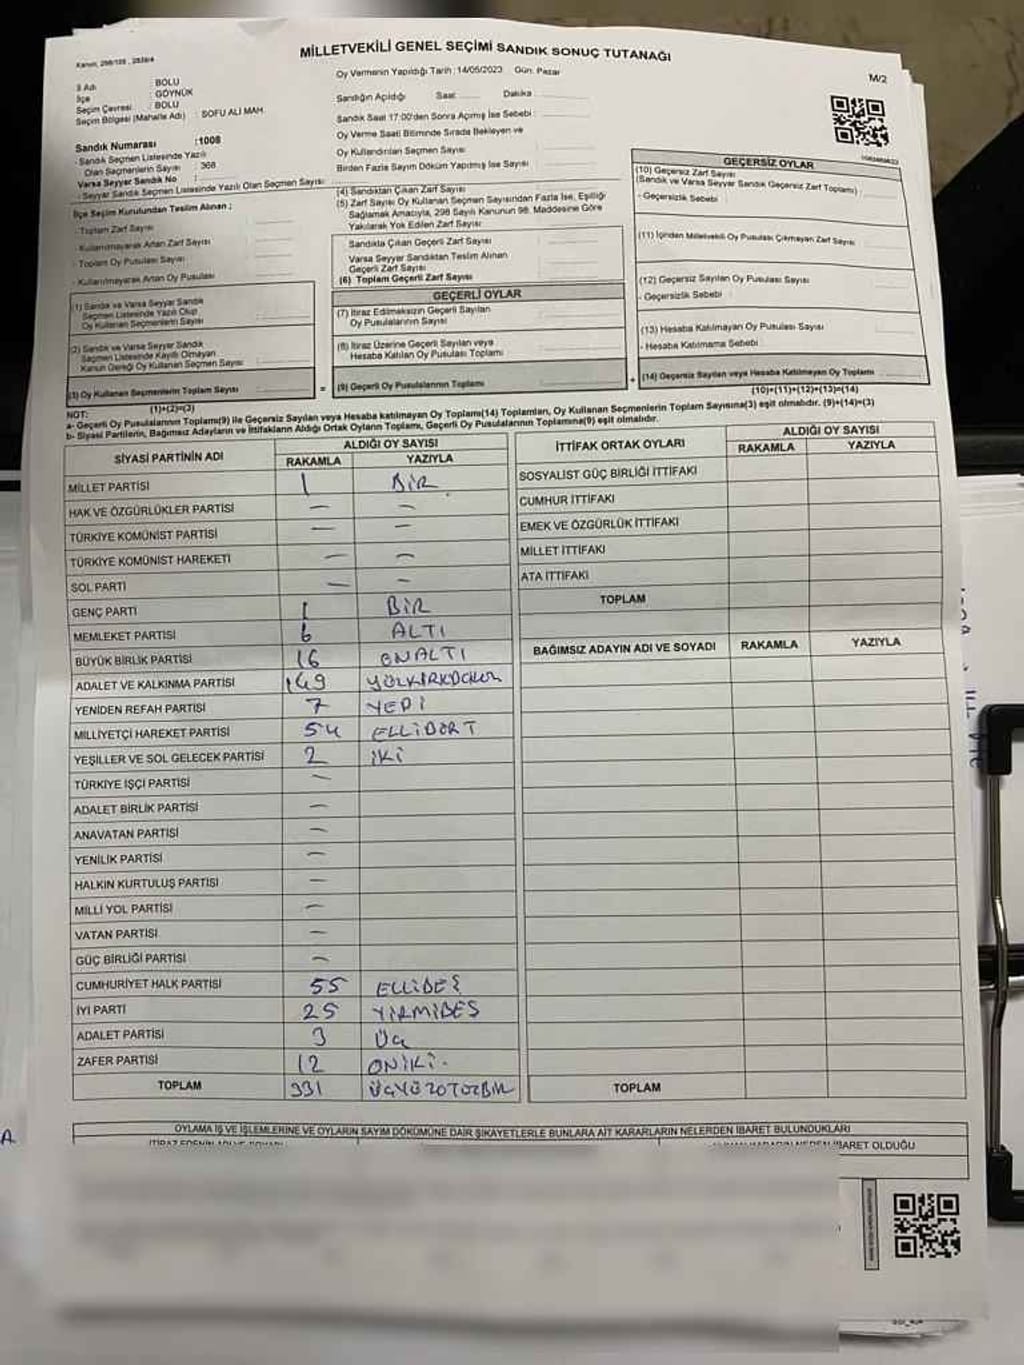 Kanun: 298/105 , 2839/4
MİLLETVEKİLİ GENEL SEÇİMİ SANDIK SONUÇ TUTANAĞI
M/2
İl Adı : BOLU
İlçe : GÖYNÜK
Seçim Çevresi : BOLU
Seçim Bölgesi (Mahalle Adı) : SOFU ALİ MAH.
Sandık Numarası :1008
- Sandık Seçmen Listesinde Yazılı
Olan Seçmenlerin Sayısı : 368
Varsa Seyyar Sandık No :
- Seyyar Sandık Seçmen Listesinde Yazılı Olan Seçmen Sayısı:
İlçe Seçim Kurulundan Teslim Alınan ;
- Toplam Zarf Sayısı
- Kullanılmayarak Artan Zarf Sayısı
- Toplam Oy Pusulası Sayısı
- Kullanılmayarak Artan Oy Pusulası
(1) Sandık ve Varsa Seyyar Sandık
Seçmen Listesinde Yazılı Olup
Oy Kullanan Seçmenlerin Sayısı
(2) Sandık ve Varsa Seyyar Sandık
Seçmen Listesinde Kayıtlı Olmayan
Kanun Gereği Oy Kullanan Seçmen Sayısı
(3) Oy Kullanan Seçmenlerin Toplam Sayısı
(1)+(2)=(3)
Oy Vermenin Yapıldığı Tarih :14/05/2023 Gün: Pazar
Sandığın Açıldığı Saat: Dakika
Sandık Saat 17:00'den Sonra Açılmış İse Sebebi :
Oy Verme Saati Bitiminde Sırada Bekleyen ve
Oy Kullandırılan Seçmen Sayısı
Birden Fazla Sayım Döküm Yapılmış İse Sayısı
(4) Sandıktan Çıkan Zarf Sayısı
(5) Zarf Sayısı Oy Kullanan Seçmen Sayısından Fazla İse, Eşitliği
Sağlamak Amacıyla, 298 Sayılı Kanunun 98. Maddesine Göre
Yakılarak Yok Edilen Zarf Sayısı
Sandıkta Çıkan Geçerli Zarf Sayısı
Varsa Seyyar Sandıktan Teslim Alınan
Geçerli Zarf Sayısı
(6) Toplam Geçerli Zarf Sayısı
GEÇERLİ OYLAR
(7) İtiraz Edilmeksizin Geçerli Sayılan
Oy Pusulalarının Sayısı
(8) İtiraz Üzerine Geçerli Sayılan veya
Hesaba Katılan Oy Pusulası Toplamı
= (9) Geçerli Oy Pusulalarının Toplamı
GEÇERSİZ OYLAR
(10) Geçersiz Zarf Sayısı
(Sandık ve Varsa Seyyar Sandık Geçersiz Zarf Toplamı)
- Geçersizlik Sebebi :
(11) İçinden Milletvekili Oy Pusulası Çıkmayan Zarf Sayısı
(12) Geçersiz Sayılan Oy Pusulası Sayısı
- Geçersizlik Sebebi :
(13) Hesaba Katılmayan Oy Pusulası Sayısı
- Hesaba Katılmama Sebebi :
+ (14) Geçersiz Sayılan veya Hesaba Katılmayan Oy Toplamı
(10)+(11)+(12)+(13)=(14)
NOT:
a- Geçerli Oy Pusulaları Toplamı(9) ile Geçersiz Sayılan veya Hesaba katılmayan Oy Toplamı(14) Toplamları, Oy Kullanan Seçmenlerin Toplam Sayısına(3) eşit olmalıdır. (9)+(14)=(3)
b- Siyasi Partilerin, Bağımsız Adayların ve İttifakların Aldığı Ortak Oyların Toplamı, Geçerli Oy Pusulalarının Toplamına(9) eşit olmalıdır.
SİYASİ PARTİNİN ADI ALDIĞI OY SAYISI
RAKAMLA YAZIYLA
MİLLET PARTİSİ 1 BİR
HAK VE ÖZGÜRLÜKLER PARTİSİ — —
TÜRKİYE KOMÜNİST PARTİSİ — —
TÜRKİYE KOMÜNİST HAREKETİ — —
SOL PARTİ — —
GENÇ PARTİ 1 BİR
MEMLEKET PARTİSİ 6 ALTI
BÜYÜK BİRLİK PARTİSİ 16 ONALTI
ADALET VE KALKINMA PARTİSİ 149
YENİDEN REFAH PARTİSİ 7 YEDİ
MİLLİYETÇİ HAREKET PARTİSİ 54 ELLİDÖRT
YEŞİLLER VE SOL GELECEK PARTİSİ 2 İKİ
TÜRKİYE İŞÇİ PARTİSİ —
ADALET BİRLİK PARTİSİ —
ANAVATAN PARTİSİ —
YENİLİK PARTİSİ —
HALKIN KURTULUŞ PARTİSİ —
MİLLİ YOL PARTİSİ —
VATAN PARTİSİ —
GÜÇ BİRLİĞİ PARTİSİ —
CUMHURİYET HALK PARTİSİ 55 ELLİBEŞ
İYİ PARTİ 25 YİRMİBEŞ
ADALET PARTİSİ 3 ÜÇ
ZAFER PARTİSİ 12 ONİKİ.
TOPLAM 331 ÜÇYÜZOTUZBİR
İTTİFAK ORTAK OYLARI ALDIĞI OY SAYISI
RAKAMLA YAZIYLA
SOSYALİST GÜÇ BİRLİĞİ İTTİFAKI
CUMHUR İTTİFAKI
EMEK VE ÖZGÜRLÜK İTTİFAKI
MİLLET İTTİFAKI
ATA İTTİFAKI
TOPLAM
BAĞIMSIZ ADAYIN ADI VE SOYADI RAKAMLA YAZIYLA
TOPLAM
OYLAMA İŞ VE İŞLEMLERİNE VE OYLARIN SAYIM DÖKÜMÜNE DAİR ŞİKAYETLERLE BUNLARA AİT KARARLARIN NELERDEN İBARET BULUNDUKLARI
İBARET OLDUĞU